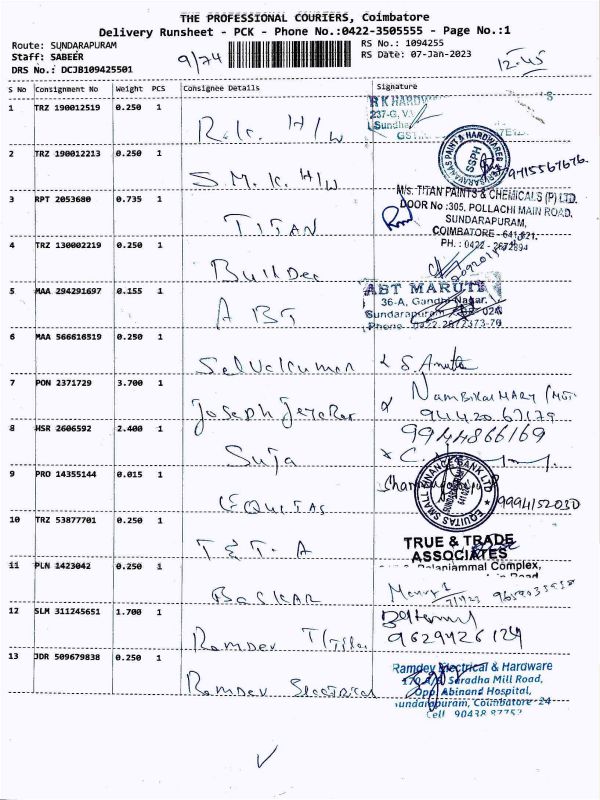 THE PROFESSIONAL COURIERS, Coimbatore
Delivery Runsheet - PCK - Phone No.:0422-3505555 - Page No.:1
Route: SUNDARAPURAM
RS No.: 1094255
Staff: SABEER
RS Date: 07-Jan-2023
DRS No.: DCJB109425501
9/74
12.45
S No Consignment No Weight PCS Consignee Details Signature
1 TRZ 190012519 0.250 1 R.K. H/W
R K HARDW
237-G, V.
Sundhe
2 TRZ 190012213 0.250 1 S.M.K. H/W
SSPH
9715567676.
3 RPT 2053680 0.735 1 TITAN
M/s. TITAN PAINTS & CHEMICALS (P) LTD.
DOOR No :305, POLLACHI MAIN ROAD,
SUNDARAPURAM,
COIMBATORE - 641 021.
PH. : 0422 - 2672894
4 TRZ 130002219 0.250 1 Builder
5 MAA 294291697 0.155 1 A B T
ABT MARUTI
36-A, Gandhi Nagar,
Sundarapuram
Phone 0422-2672373-76
6 MAA 566616519 0.250 1 Selvakumar
7 PON 2371729 3.700 1 Joseph
94420 67179
8 HSR 2606592 2.400 1 Suja
9944866169
9 PRO 14355144 0.015 1 EQUITAS
EQUITAS SMALL FINANCE BANK LTD
9994152030
10 TRZ 53877701 0.250 1 T & T. A
TRUE & TRADE
ASSOCIATES
Palaniammal Complex,
Road
11 PLN 1423042 0.250 1 Baskar
12 SLM 311245651 1.700 1 Ramdev T/Tiles
9629426124
13 JDR 509679838 0.250 1 Ramdev Electrical
Ramdev Electrical & Hardware
Saradha Mill Road,
Opp Abinand Hospital,
Sundarapuram, Coimbatore-24
Cell 90438 87757